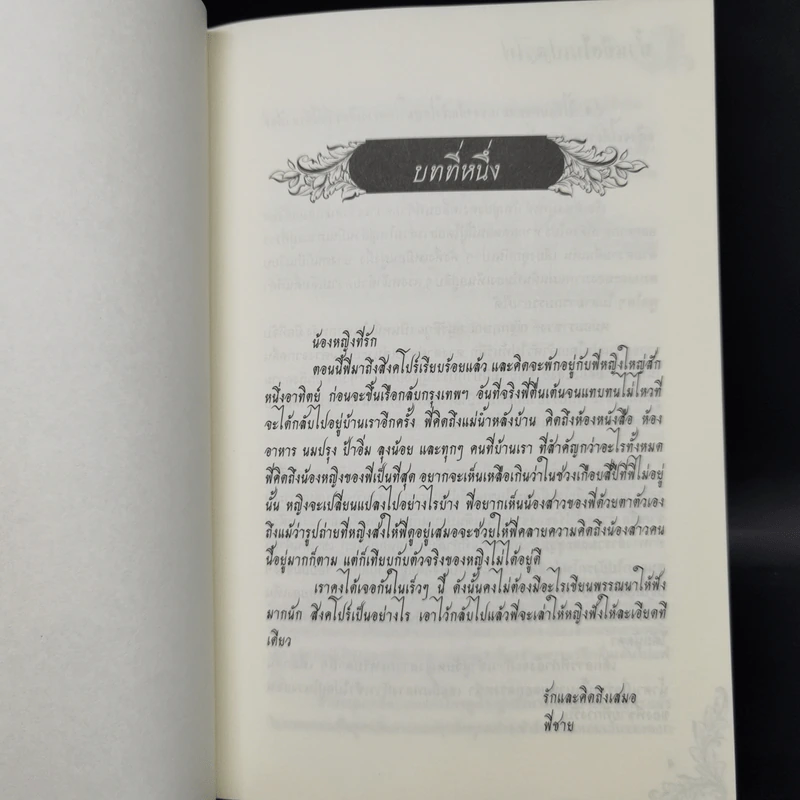 บทที่หนึ่ง
น้องหญิงที่รัก
ตอนนี้พี่มาถึงสิงคโปร์เรียบร้อยแล้ว และคิดจะพักอยู่กับพี่หญิงใหญ่สัก
หนึ่งอาทิตย์ ก่อนจะขึ้นเรือกลับกรุงเทพฯ อันที่จริงพี่ตื่นเต้นจนแทบทนไม่ไหวที่
จะได้กลับไปอยู่บ้านเราอีกครั้ง พี่คิดถึงแม่น้ำหลังบ้าน คิดถึงห้องหนังสือ ห้อง
อาหาร นมปรุง ป้าอิ่ม ลุงน้อย และทุกๆ คนที่บ้านเรา ที่สำคัญกว่าอะไรทั้งหมด
พี่คิดถึงน้องหญิงของพี่เป็นที่สุด อยากจะเห็นเหลือเกินว่าในช่วงเกือบสี่ปีที่พี่ไม่อยู่
นั้น หญิงจะเปลี่ยนแปลงไปอย่างไรบ้าง พี่อยากเห็นน้องสาวของพี่ด้วยตาตัวเอง
ถึงแม้ว่ารูปถ่ายที่หญิงส่งให้พี่ดูอยู่เสมอจะช่วยให้พี่คลายความคิดถึงน้องสาวคน
นี้อยู่มากก็ตาม แต่ก็เทียบกับตัวจริงของหญิงไม่ได้อยู่ดี
เราคงได้เจอกันในเร็วๆ นี้ ดังนั้นคงไม่ต้องมีอะไรเขียนพรรณนาให้ฟัง
มากนัก สิงคโปร์เป็นอย่างไร เอาไว้กลับไปแล้วพี่จะเล่าให้หญิงฟังให้ละเอียดที
เดียว
รักและคิดถึงเสมอ
พี่ชาย